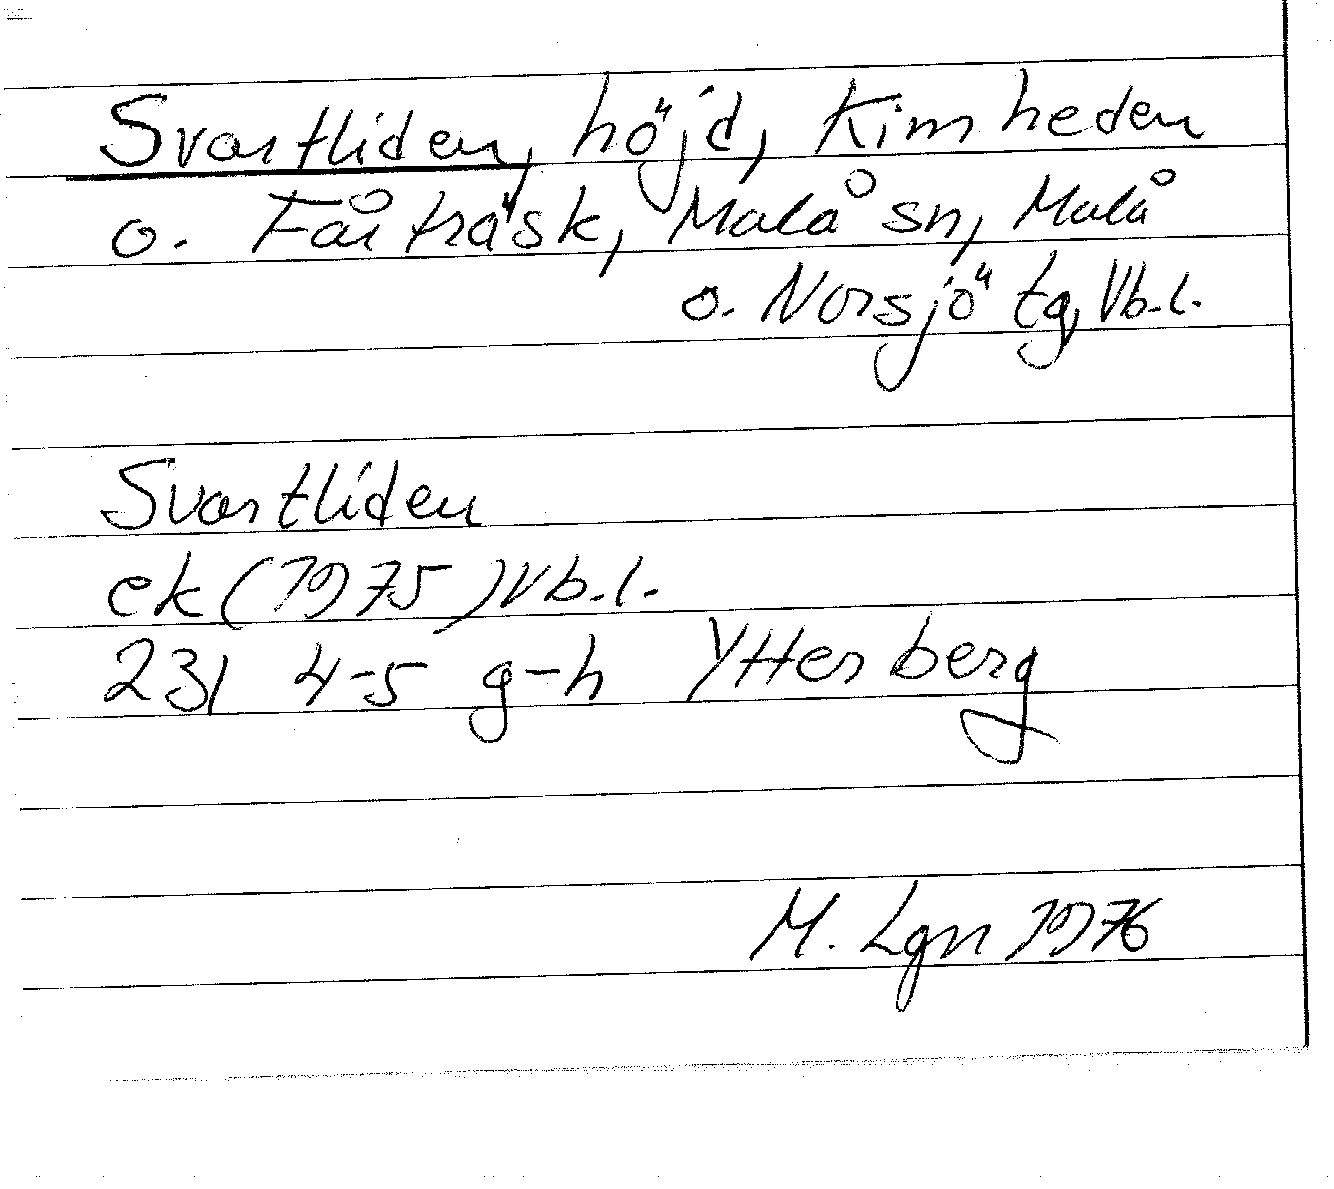 Svartliden, höjd, Kimheden
o. Fårträsk, Malå sn, Malå
o. Norsjö tg, Vb.l.
Svartliden
ek (1975) Vb.l.
231 4-5 g-h Ytterberg
M. Lgn 1976